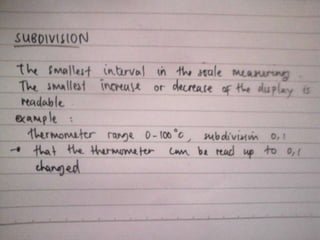 SUBDIVISION
The smallest interval in the scale measuring.
The smallest increase or decrease of the display is
readable.
example :
thermometer range 0-100°C, subdivision 0,1
→ that the thermometer can be read up to 0,1
changed